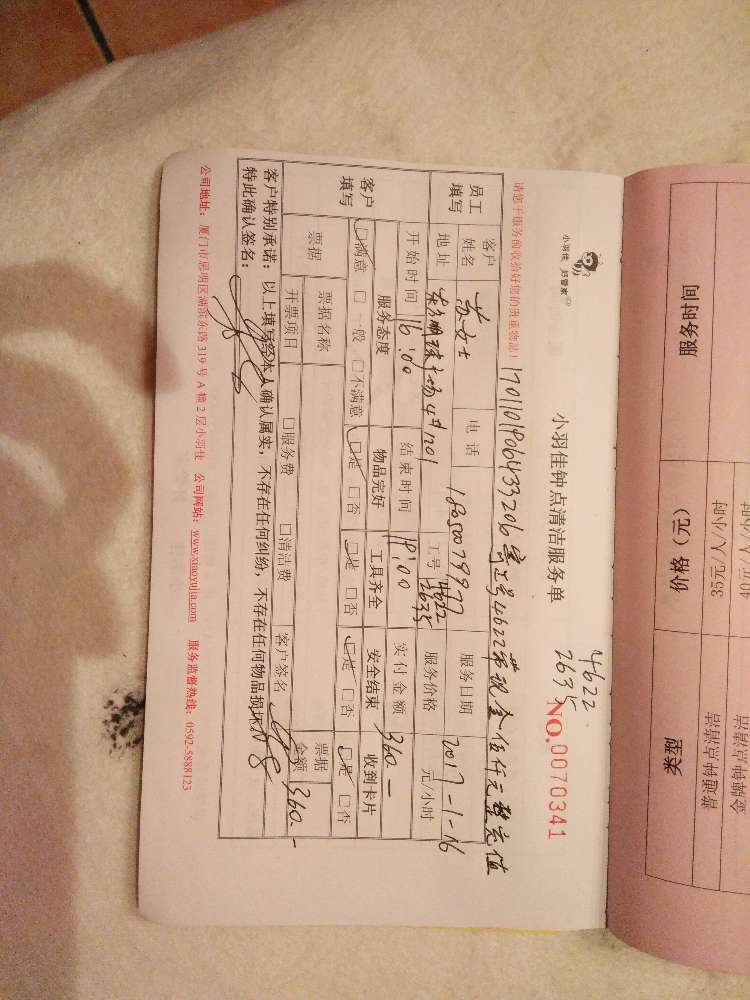 小羽佳 好管家
小羽佳钟点清洁服务单
4622
2635
NO.0070341
1701101906433206 工号4622 带现金伍仟元整充值
请您于服务前收拾好您的贵重物品！
员工填写
客户姓名 苏女士 电话 18650079977 服务日期 2017-1-16
地址 东方明珠广场4#1201 工号 4622 2635 服务价格 元/小时
客户填写
开始时间 16:00 结束时间 19:00 实付金额 360.-
服务态度 物品完好 工具齐全 安全结束 收到卡片
☑满意 □一般 □不满意 ☑是 □否 ☑是 □否 ☑是 □否 ☑是 □否
票据 票据名称 客户签名 票据金额 360.-
开票项目 □服务费 □清洁费
客户特别承诺：以上填写经本人确认属实，不存在任何纠纷，不存在任何物品损坏。
特此确认签名：
公司地址：厦门市思明区湖滨东路319号A幢2层小羽佳 公司网站：www.xiaoyujia.com 服务监督热线：0592-5888123
服务时间 价格（元） 类型
35元/人/小时 普通钟点清洁
40元/人/小时